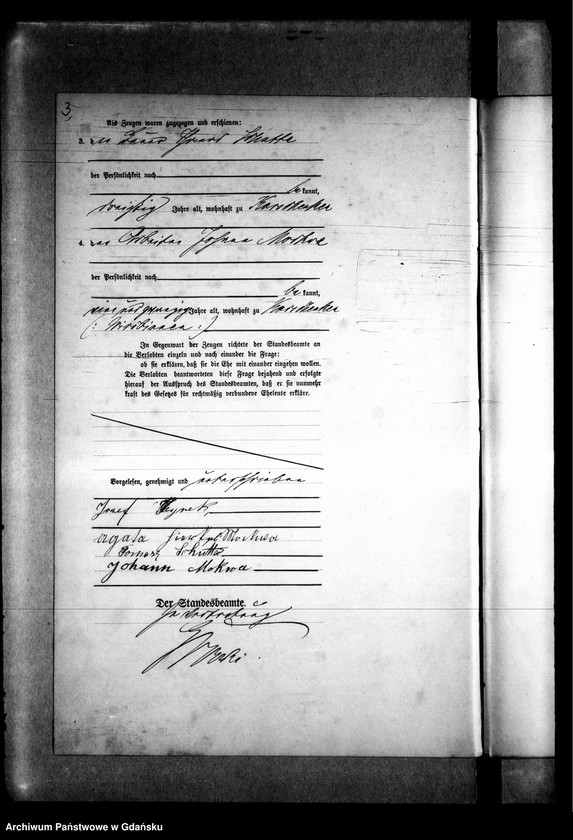 3.
Als Zeugen waren zugezogen und erschienen:
3. der
der Persönlichkeit nach
be kannt,
dreißig Jahre alt, wohnhaft zu
4. der Arbeiter Johann Mokwa
der Persönlichkeit nach
be kannt,
Jahre alt, wohnhaft zu
In Gegenwart der Zeugen richtete der Standesbeamte an
die Verlobten einzeln und nach einander die Frage:
ob sie erklären, daß sie die Ehe mit einander eingehen wollen.
Die Verlobten beantworteten diese Frage bejahend und erfolgte
hierauf der Ausspruch des Standesbeamten, daß er sie nunmehr
kraft des Gesetzes für rechtmäßig verbundene Eheleute erkläre.
Vorgelesen, genehmigt und unterschrieben
Josef
Agata Mokwa
Johann Mokwa
Der Standesbeamte.
In Vertretung
Archiwum Państwowe w Gdańsku